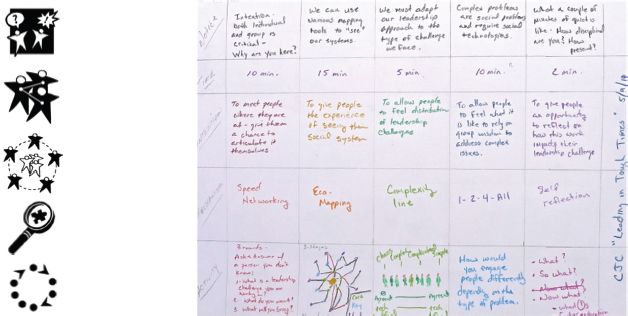 Intention:
Both Individual
and group is
critical -
Why are you here?
10 min.
To meet people
where they are
at - give them
a chance to
articulate it
themselves
Speed
Networking
3 rounds -
a person you don't
know:
1. what is a leadership
challenge you are
2. what do you want?
3. what will you bring?
We can use
various mapping
tools to "see"
our systems.
15 min.
To give people
the experience
of seeing their
social system
Eco-
Mapping
We must adapt
our leadership
approach to the
type of challenge
we face.
5 min.
To allow people
to feel distribution
of leadership
challenges
Complexity
line
Agree
Complex problems
are social problems
and require social
technologies.
10 min.
To allow people
to feel what it
is like to rely on
group wisdom to
address complex
issues.
1-2-4-All
How would
you engage
people differently
depending on the
type of problem.
What a couple of
minutes of quiet is
like - How disciplined
are you? How
present?
2 min.
To give people
an opportunity
to reflect on
how this work
impacts their
leadership challenge
Self
reflection
• What?
• So what?
• Now what?
• Now what
CJC "Leading in Tough Times"